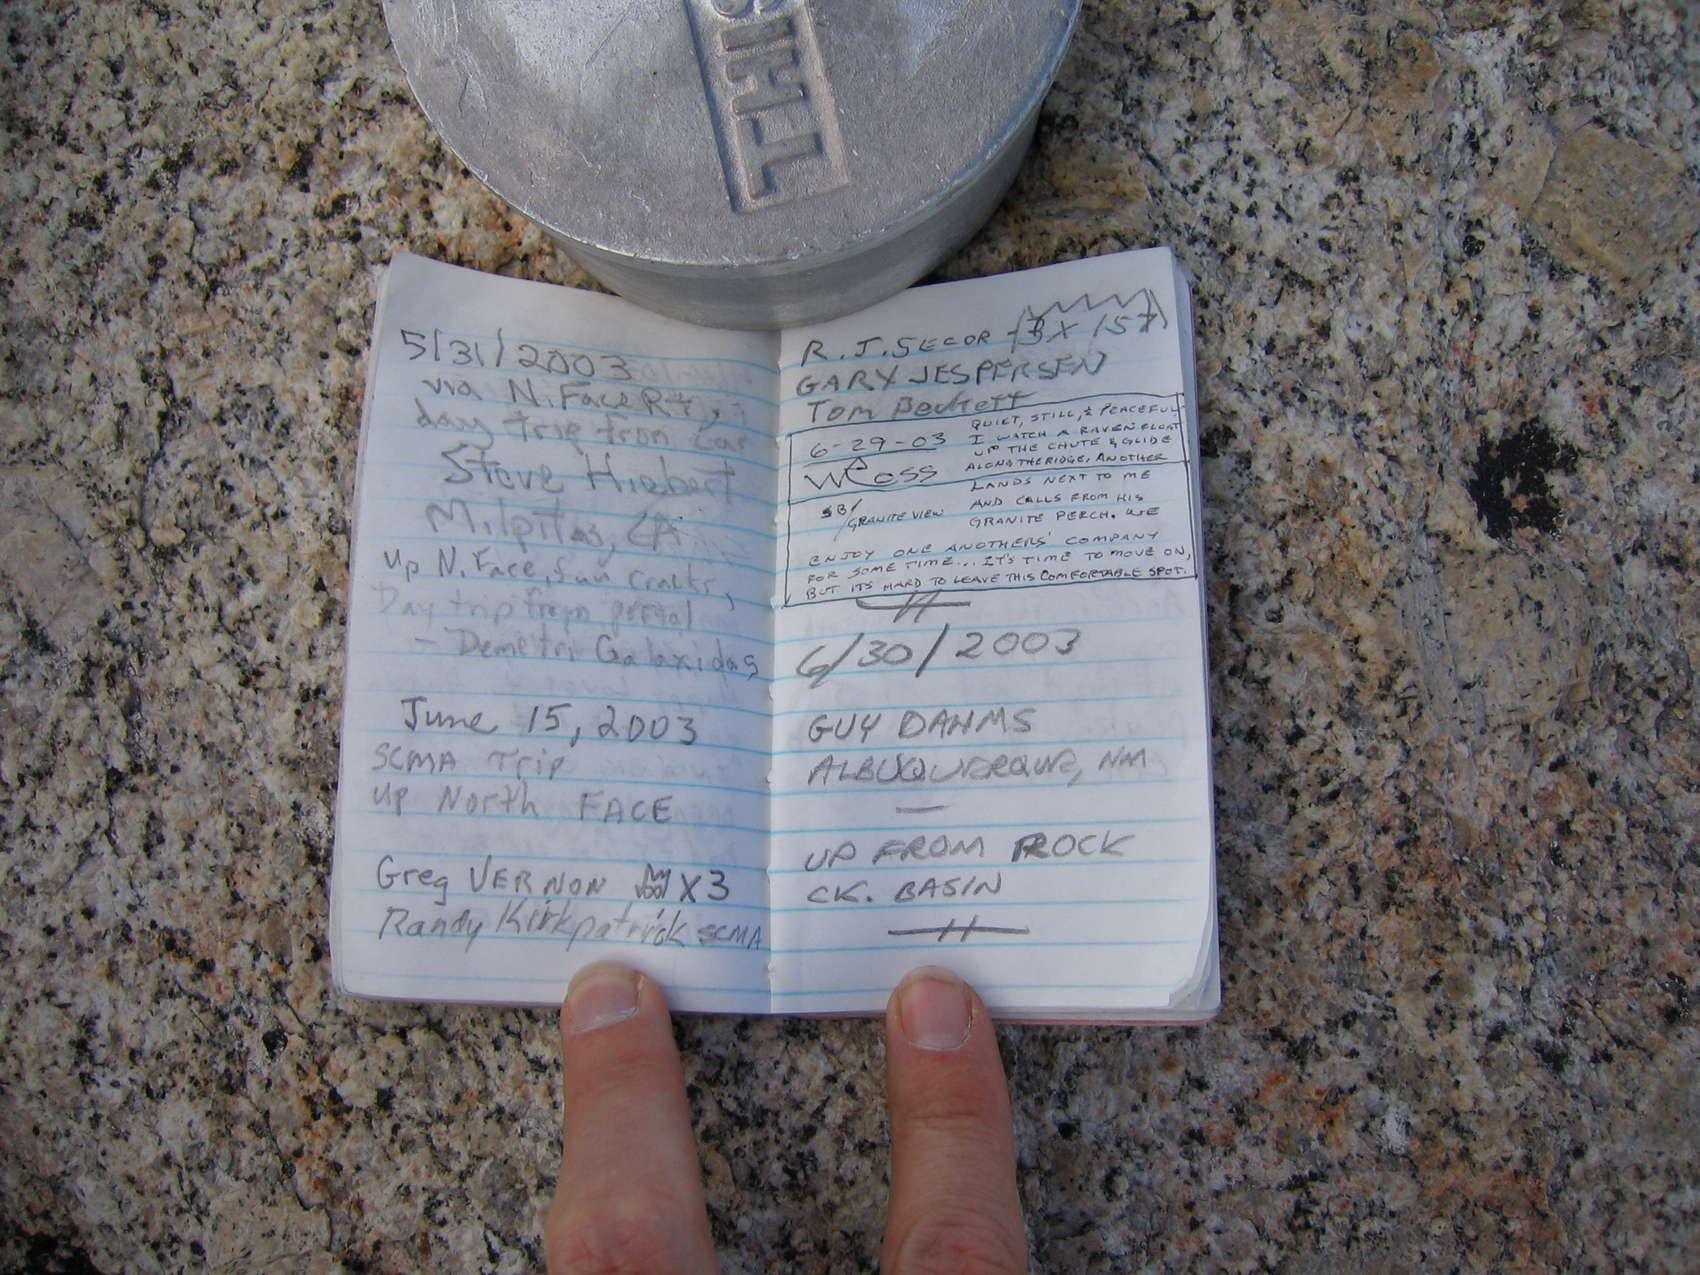 THIS
5/31/2003
via N. Face Rt,
day trip from car
Steve Hiebert
Milpitas, CA
up N. Face, Sun cracks,
Day trip from portal
- Demetri Galaxidas
June 15, 2003
SCMA Trip
up North FACE
Greg VERNON X3
Randy Kirkpatrick SCMA
R. J. SECOR (3 X 157)
GARY JESPERSEN
Tom Beckett
6-29-03
WRoss
SB/
GRANITE VIEW
QUIET, STILL, & PEACEFUL
I WATCH A RAVEN FLOAT
UP THE CHUTE & GLIDE
ALONG THE RIDGE, ANOTHER
LANDS NEXT TO ME
AND CALLS FROM HIS
GRANITE PERCH. WE
ENJOY ONE ANOTHERS' COMPANY
FOR SOME TIME... IT'S TIME TO MOVE ON,
BUT ITS HARD TO LEAVE THIS COMFORTABLE SPOT.
6/30/2003
GUY DAHMS
ALBUQUERQUE, NM
—
UP FROM ROCK
CK. BASIN